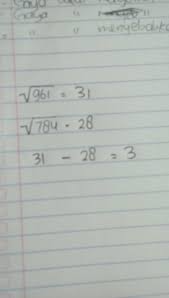 Saya
" " "
" " menyebabka
√961 = 31
√784 = 28
31 - 28 = 3